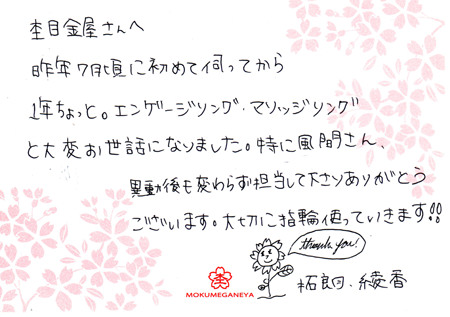 杢目金屋さんへ
昨年7月頃に初めて伺ってから
1年ちょっと。エンゲージリング・マリッジリング
と大変お世話になりました。特に風間さん、
異動後も変わらず担当して下さりありがとう
ございます。大切に指輪使っていきます!!
thank you!
MOKUMEGANEYA
拓郎・綾香